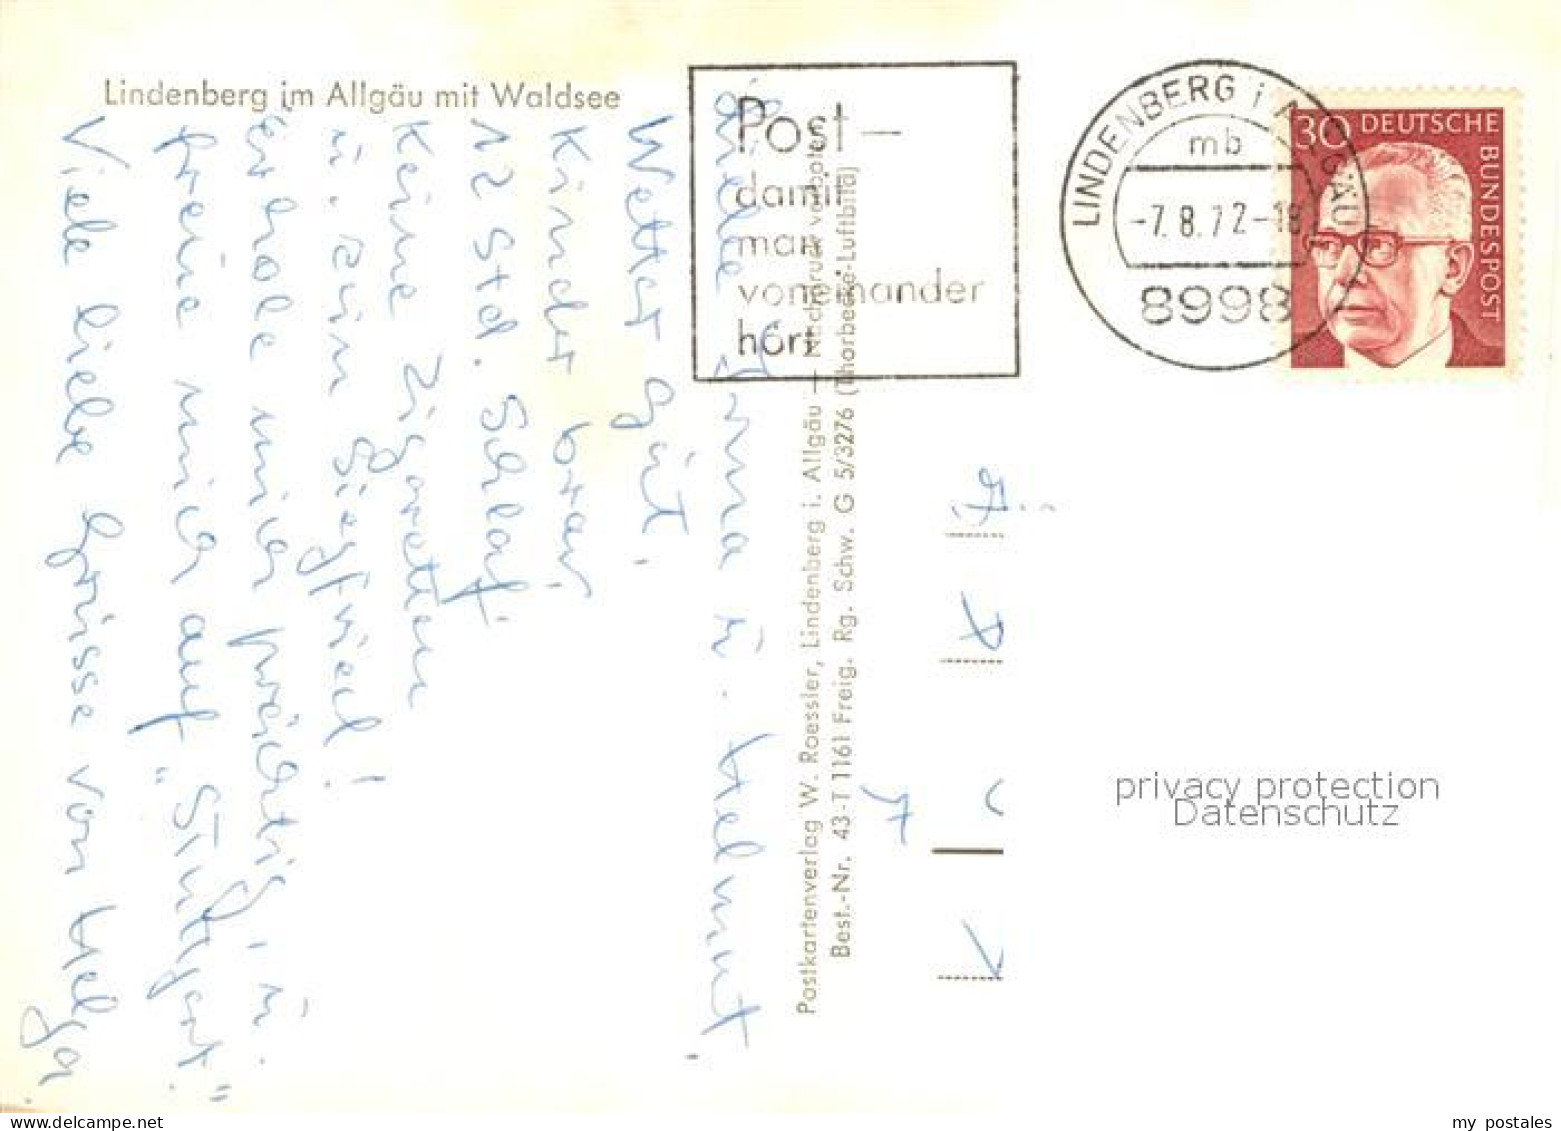 Lindenberg im Allgäu mit Waldsee
Post –
damit
man
voneinander
hört
LINDENBERG i ALLGÄU
mb
-7.8.72-18
8998
30 DEUTSCHE
BUNDESPOST
Liebe Irma u. Helmut,
Wetter gut,
Kinder brav,
12 Std. Schlaf.
Keine Zigaretten
u. ein Siegfried!
Erhole mich prächtig, u.
freue mich auf "Stuttgart."
Viele liebe Grüsse von Helga.
Postkartenverlag W. Roessler, Lindenberg i. Allgäu — Nachdruck verboten
Best.-Nr. 43-T 1161 Freig. Rg. Schw. G 5/3276 (Thorbecke-Luftbild)
privacy protection
Datenschutz
my postales